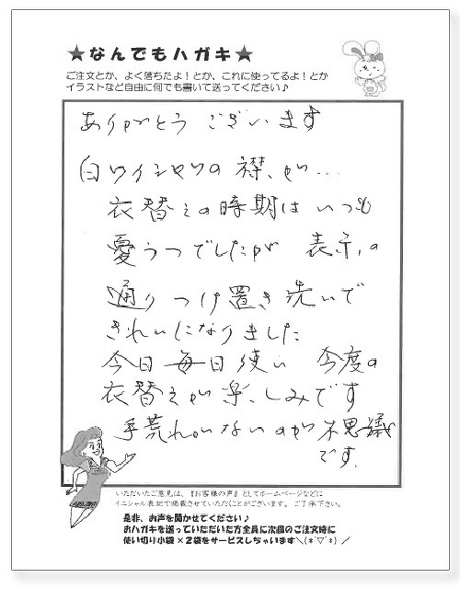 ★なんでもハガキ★
ご注文とか、よく落ちたよ！とか、これに使ってるよ！とか
イラストなど自由に何でも書いて送ってください♪
ありがとう ございます
白ワイシャツの 襟、が…
衣替えの時期は いつも
憂うつでしたが 表示の
通り つけ置き洗いで
きれいになりました
今日毎日使い 今度の
衣替えが楽しみです
手荒れがないのが不思議
です。
いただいたご意見は、『お客様の声』としてホームページなどに
イニシャル表記で掲載させていただくことがございます。ご了承下さい。
是非、お声を聞かせてください♪
おハガキを送っていただいた方全員に次回のご注文時に
使い切り小袋×2袋をサービスしちゃいます＼(*´▽`*)／